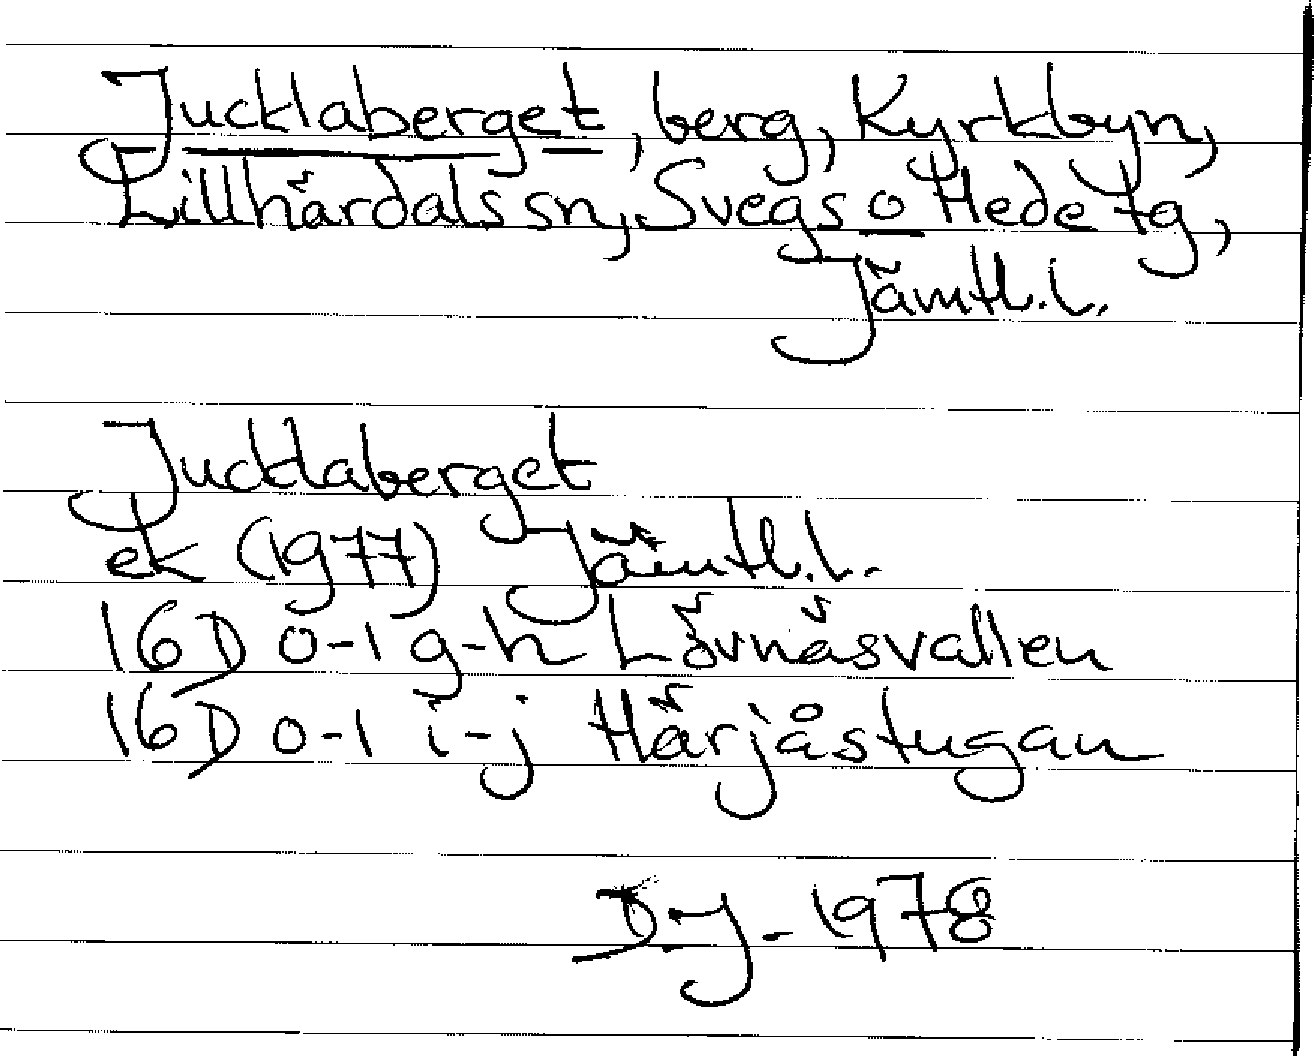 Jucklaberget, berg, Kyrkbyn,
Lillhärdals sn, Svegs o Hede tg,
Jämtl. l.
Jucklaberget
ek (1977) Jämtl. l.
16D 0-1 g-h Lövnäsvallen
16D 0-1 i-j Härjåstugan
1978